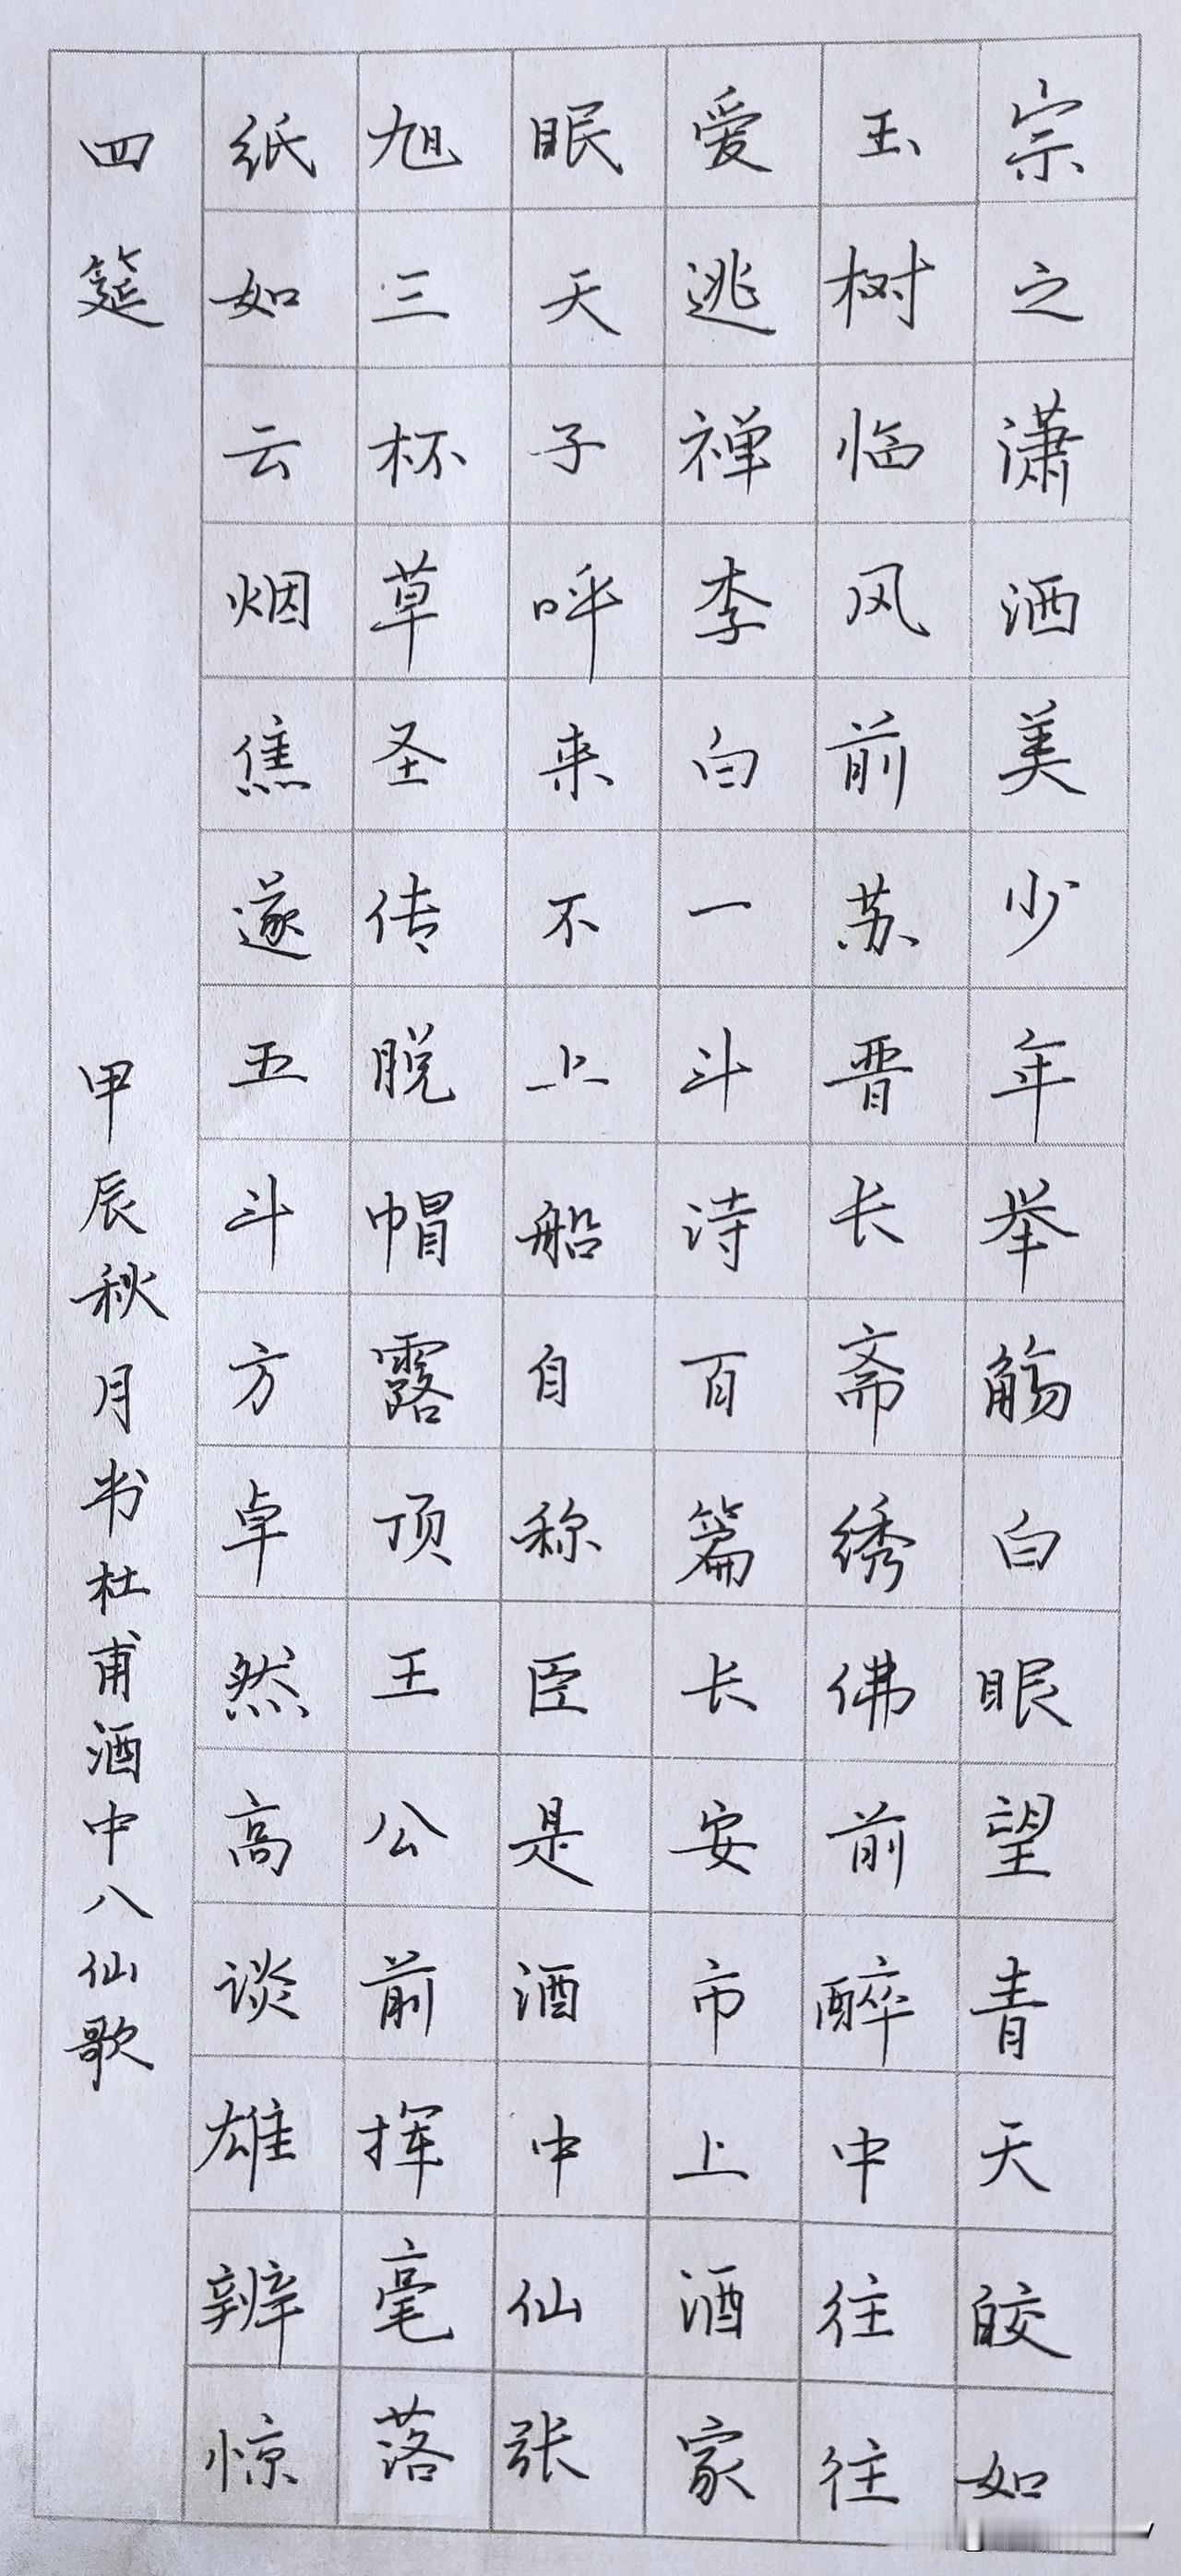 宗之潇洒美少年举觞白眼望青天皎如
玉树临风前苏晋长斋绣佛前醉中往往
爱逃禅李白一斗诗百篇长安市上酒家
眠天子呼来不上船自称臣是酒中仙张
旭三杯草圣传脱帽露顶王公前挥毫落
纸如云烟焦遂五斗方卓然高谈雄辨惊
四筵
甲辰秋月书杜甫酒中八仙歌